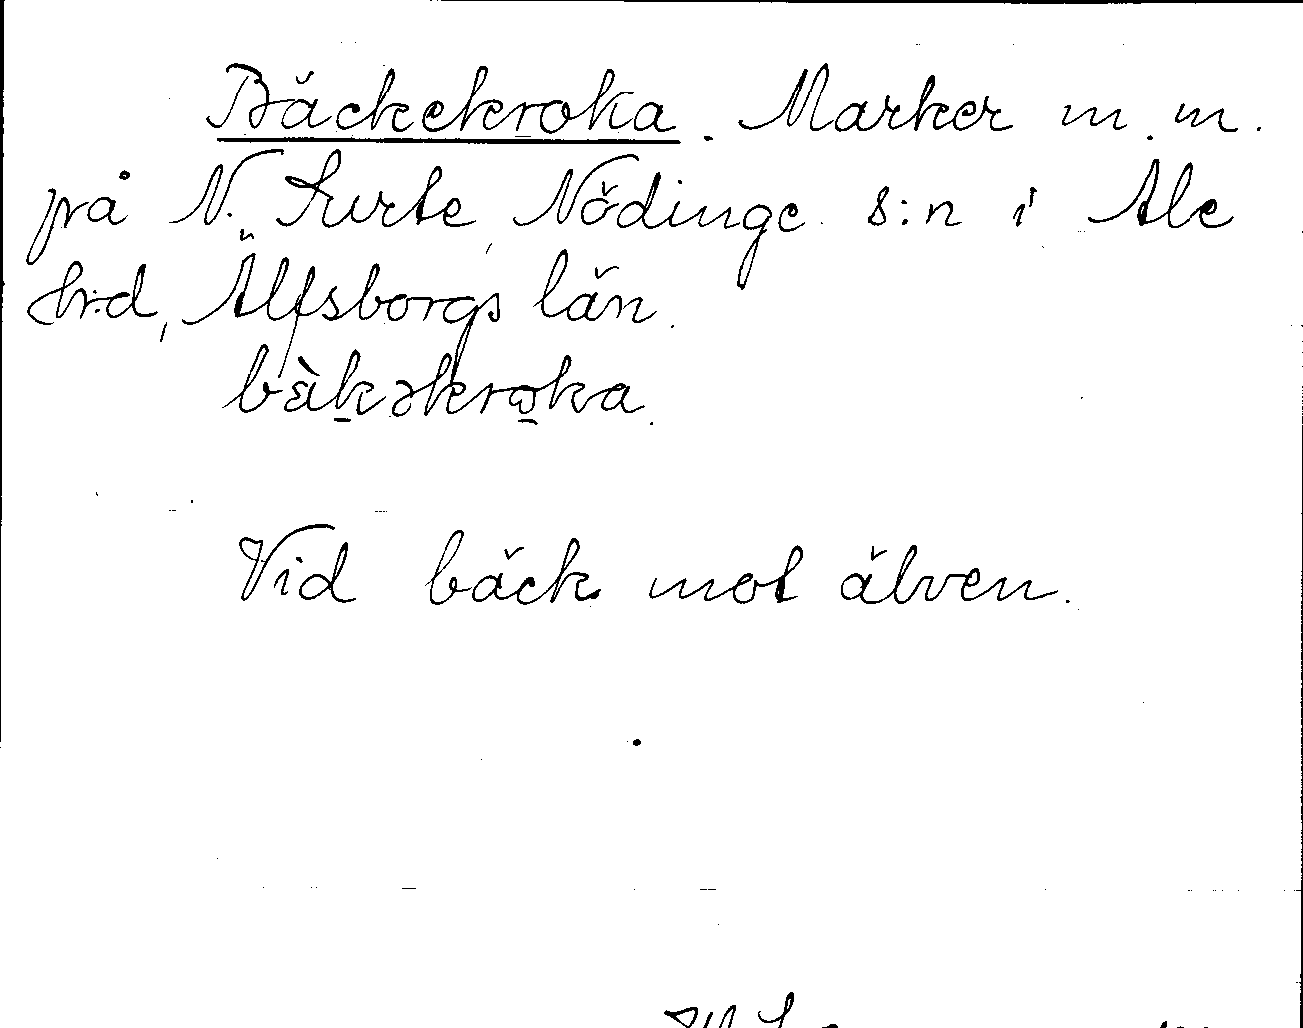 Bäckekroka. Marker m. m.
på N. Surte, Nödinge s:n i Ale
hrd, Älfsborgs län.
bàkəkroka.
Vid bäck mot älven.